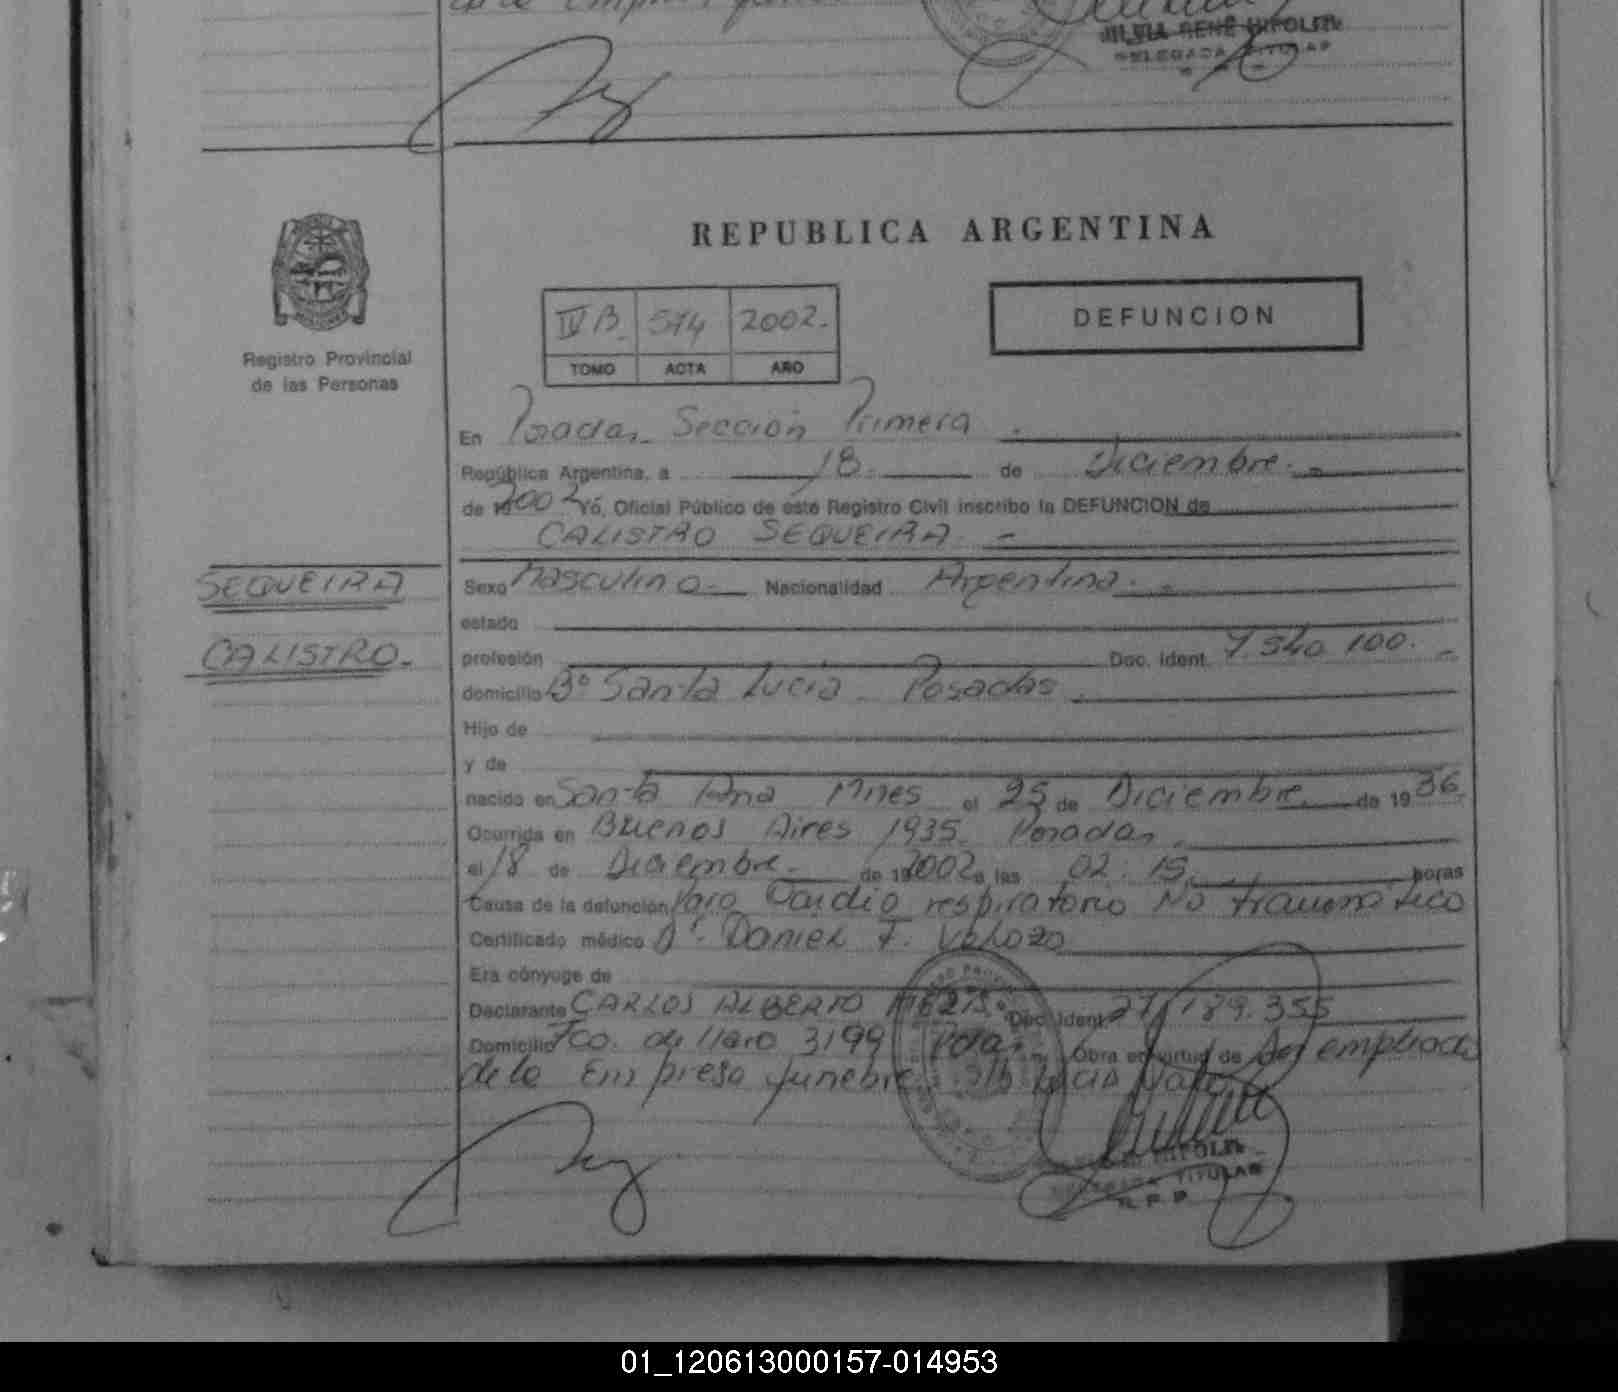 de la Empresa fune
SILVIA RENÉ HIPOLITO
DELEGADA TITULAR
REPUBLICA ARGENTINA
IV B. 574 2002.
TOMO ACTA AÑO
DEFUNCION
Registro Provincial
de las Personas
En Posadas Sección Primera.
República Argentina, a 18. de Diciembre.
de 19 2002 Yó, Oficial Público de este Registro Civil inscribo la DEFUNCION de
CALISTRO SEQUEIRA.
SEQUEIRA
CALISTRO.
Sexo Masculino. Nacionalidad Argentina.
estado
profesión Doc. Ident. 7.540.100.
domicilio Bº Santa Lucia. Posadas.
Hijo de
y de
nacido en Santa Ana Mnes el 25 de Diciembre de 1936.
Ocurrida en Buenos Aires 1935. Posadas.
el 18 de Diciembre. de 19 2002 a las 02:15. horas
Causa de la defunción Paro Cardio respiratorio No traumático
Certificado médico Dr. Daniel F. Velozo
Era cónyuge de
Declarante CARLOS ALBERTO Doc. Ident. 27.189.355
Domicilio Fco. de Haro 3199 Pdas. Obra en virtud de Ser empleado
de la Empresa funebre
HIPOLITO
DELEGADA TITULAR
R.P.P.
01_120613000157-014953